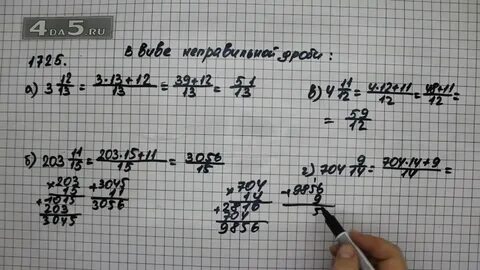 4DA5.RU
1725.
в виде неправильной дроби:
а) 3 12/13 = (3·13+12)/13 = (39+12)/13 = 51/13
в) 4 11/12 = (4·12+11)/12 = (48+11)/12 =
= 59/12
б) 203 11/15 = (203·15+11)/15 = 3056/15
× 203
15
+ 1015
203
3045
+ 3045
11
3056
г) 704 9/14 = (704·14+9)/14 =
× 704
14
+ 2816
704
9856
+ 9856
9
5